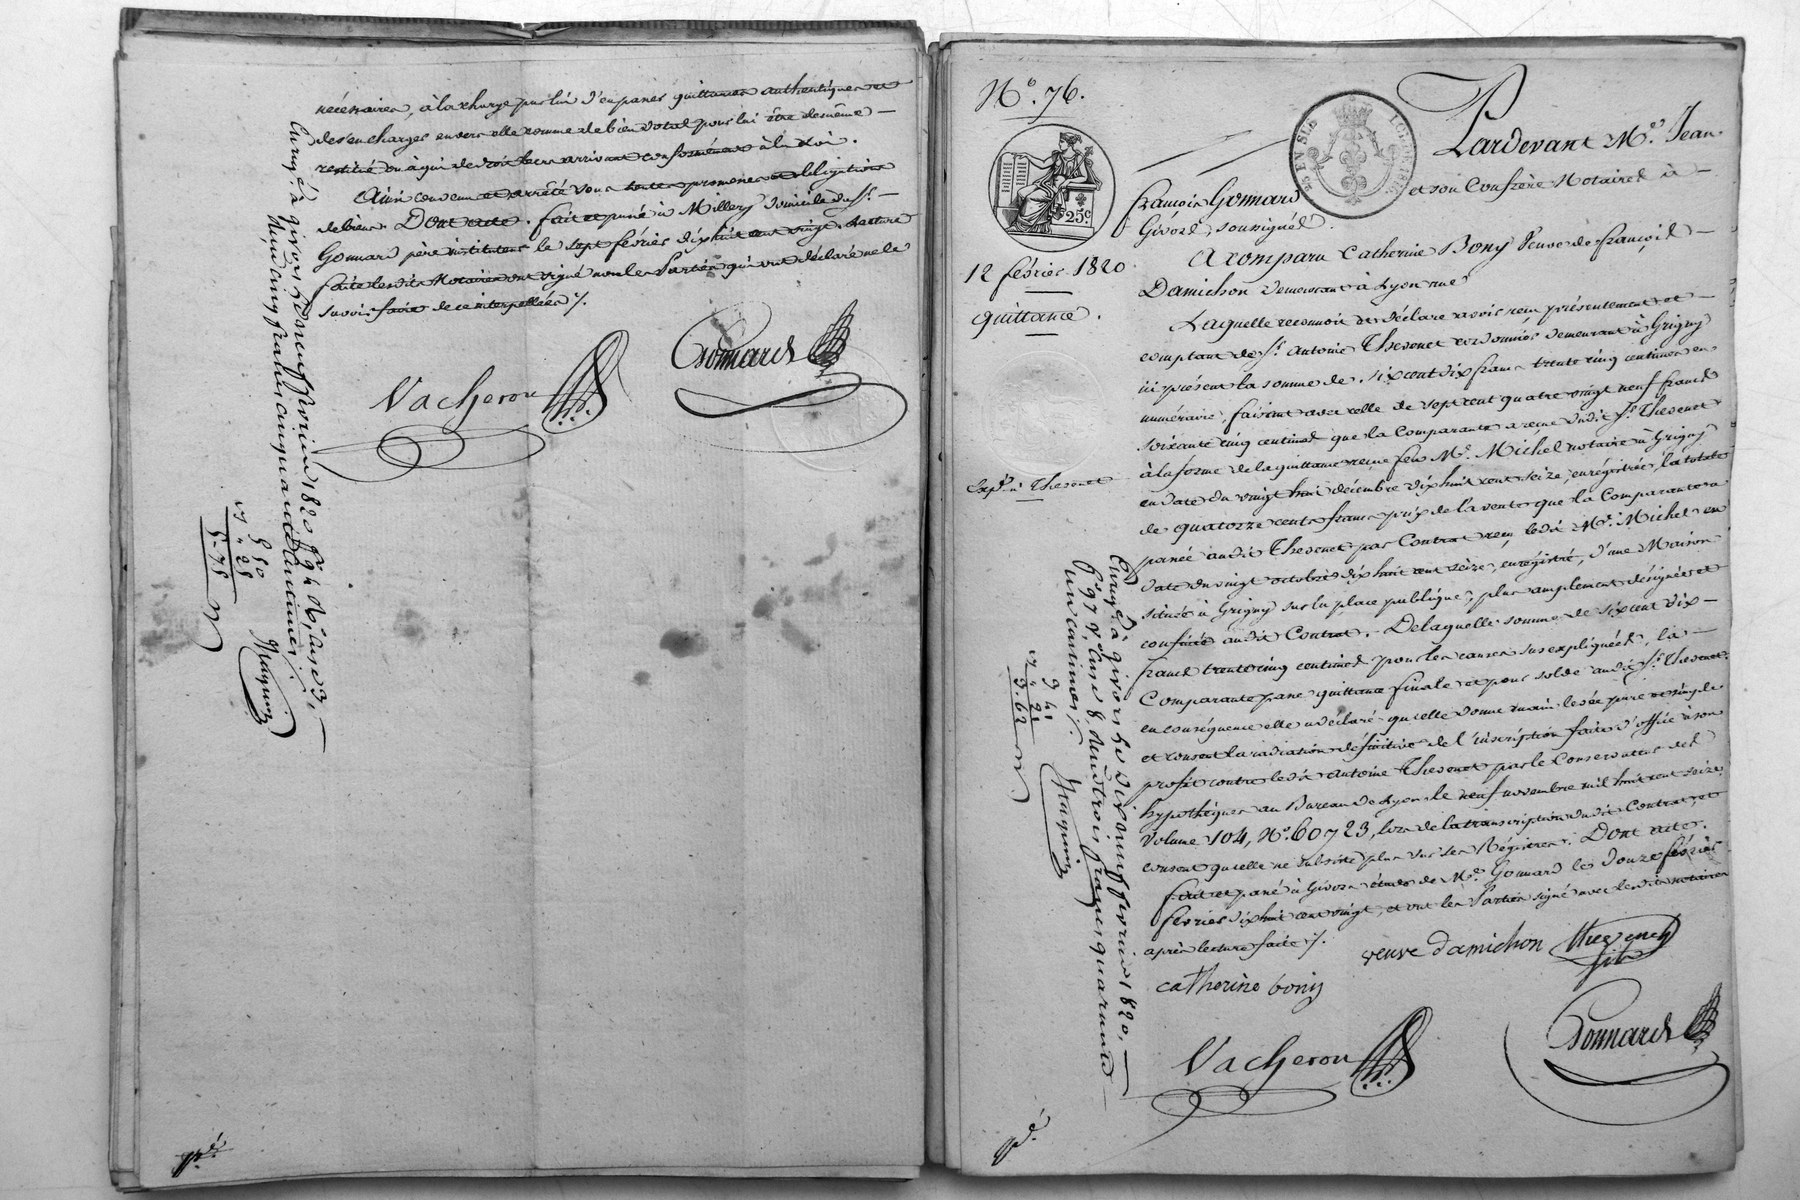 nécessaires, à la charge par lui d'en passer quittances authentiques et
des'en charger envers elle comme de bien dotal pour lui être de même —
restitué ou à qui de droit le cas arrivant conformément à la Loi.
Ainsi convenu et arrêté sous toutes promesses et obligations
de biens. Dont acte. fait et passé à Millery domicile du Sr. —
Gonnard père instituteur le sept février dix huit cent vingt. Lecture
faite lesdits Notaires ont signé non les Parties qui ont déclaré ne le
savoir faire de ce interpellées ./.
Vacheron
Gonnard
Enregé à givors le dix neuf fevrier 1820 fo 94 Ro, Case 3, —
Reçu cinq francs cinquante centimes ./.
5 50
" 55
Nº. 76.
25c
12 février 1820
quittance.
Expon à Thevenet
Pardevant Me. Jean
françois Gonnard et son Confrère Notaires à —
Givors, soussignés.
A comparu Catherine Bony Veuve de françois —
Damichon demeurant à Lyon rue
Laquelle reconnoit et déclare avoir reçu présentement et —
comptant de Sr. Antoine Thevenet cordonnier demeurant à Grigny
ici présent la somme de six cent dix francs trente cinq centimes en
numéraire, faisant avec celle de sept cent quatre vingt neuf francs
soixante cinq centimes que la Comparante a reçue dudit Sr. Thevenet
à la forme de la quittance reçue feu Me. Michel notaire à Grigny
en date du vingt huit décembre dix huit cent seize, enregistrée, la totale
de quatorze cents francs prix de la vente que la Comparante a
passée audit Thevenet par Contrat reçu ledit Me. Michel en
date du vingt octobre dix huit cent seize, enregistré, d'une Maison
située à Grigny sur la place publique, plus amplement désignée et
confinée audit Contrat. De laquelle somme de six cent dix —
francs trente cinq centimes pour les causes sus expliquées, la —
Comparante passe quittance finale et pour solde audit Sr. Thevenet.
en conséquence elle a déclaré qu'elle donne main-levée pure et simple
et consent la radiation définitive de l'inscription faite d'office à son
profit contre ledit Antoine Thevenet par le Conservateur des
hypothèques au Bureau de Lyon le neuf novembre mil huit cent seize
Volume 104, Nº. 60723, lors de la transcription dudit Contrat, et
consent qu'elle ne subsiste plus sur ses Régistres. Dont acte.
fait et passé à Givors étude de Me. Gonnard le douze février
février dix huit cent vingt, et ont les Parties signé avec lesdits notaires
après lecture faite ./.
veuve damichon
catherine bony
Vacheron
Gonnard
Enregé à givors le dix neuf fevrier 1820, —
fo 97 Vo, Case 8, Reçu trois francs quarante —
un centimes ./.